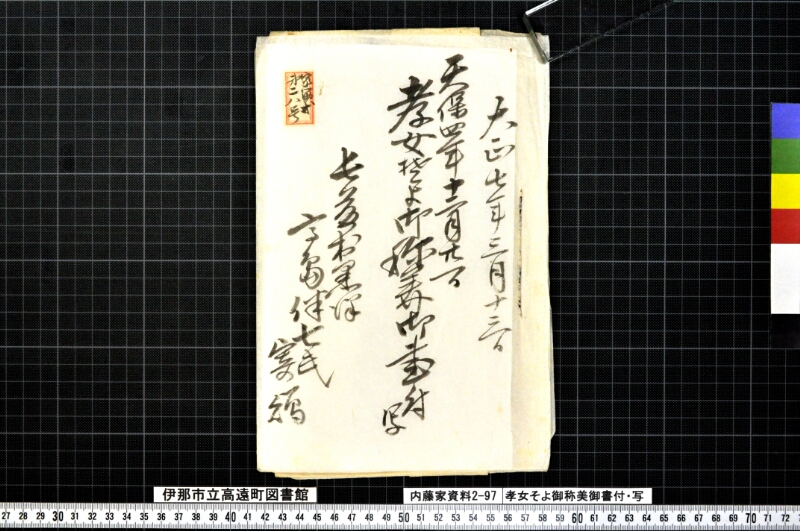 大正七年三月十三日
天保四年十二月廿一日
孝女そよ御称美御書付写
長藤村黒沢
高嶋伴七氏
寄贈
第二八号
伊那市立高遠町図書館
内藤家資料2-97
孝女そよ御称美御書付・写
27 28 29 30 31 32 33 34 35 36 37 38 39 40 41 42 43 44 45 46 47 48 49 50 51 52 53 54 55 56 57 58 59 60 61 62 63 64 65 66 67 68 69 70 71 72